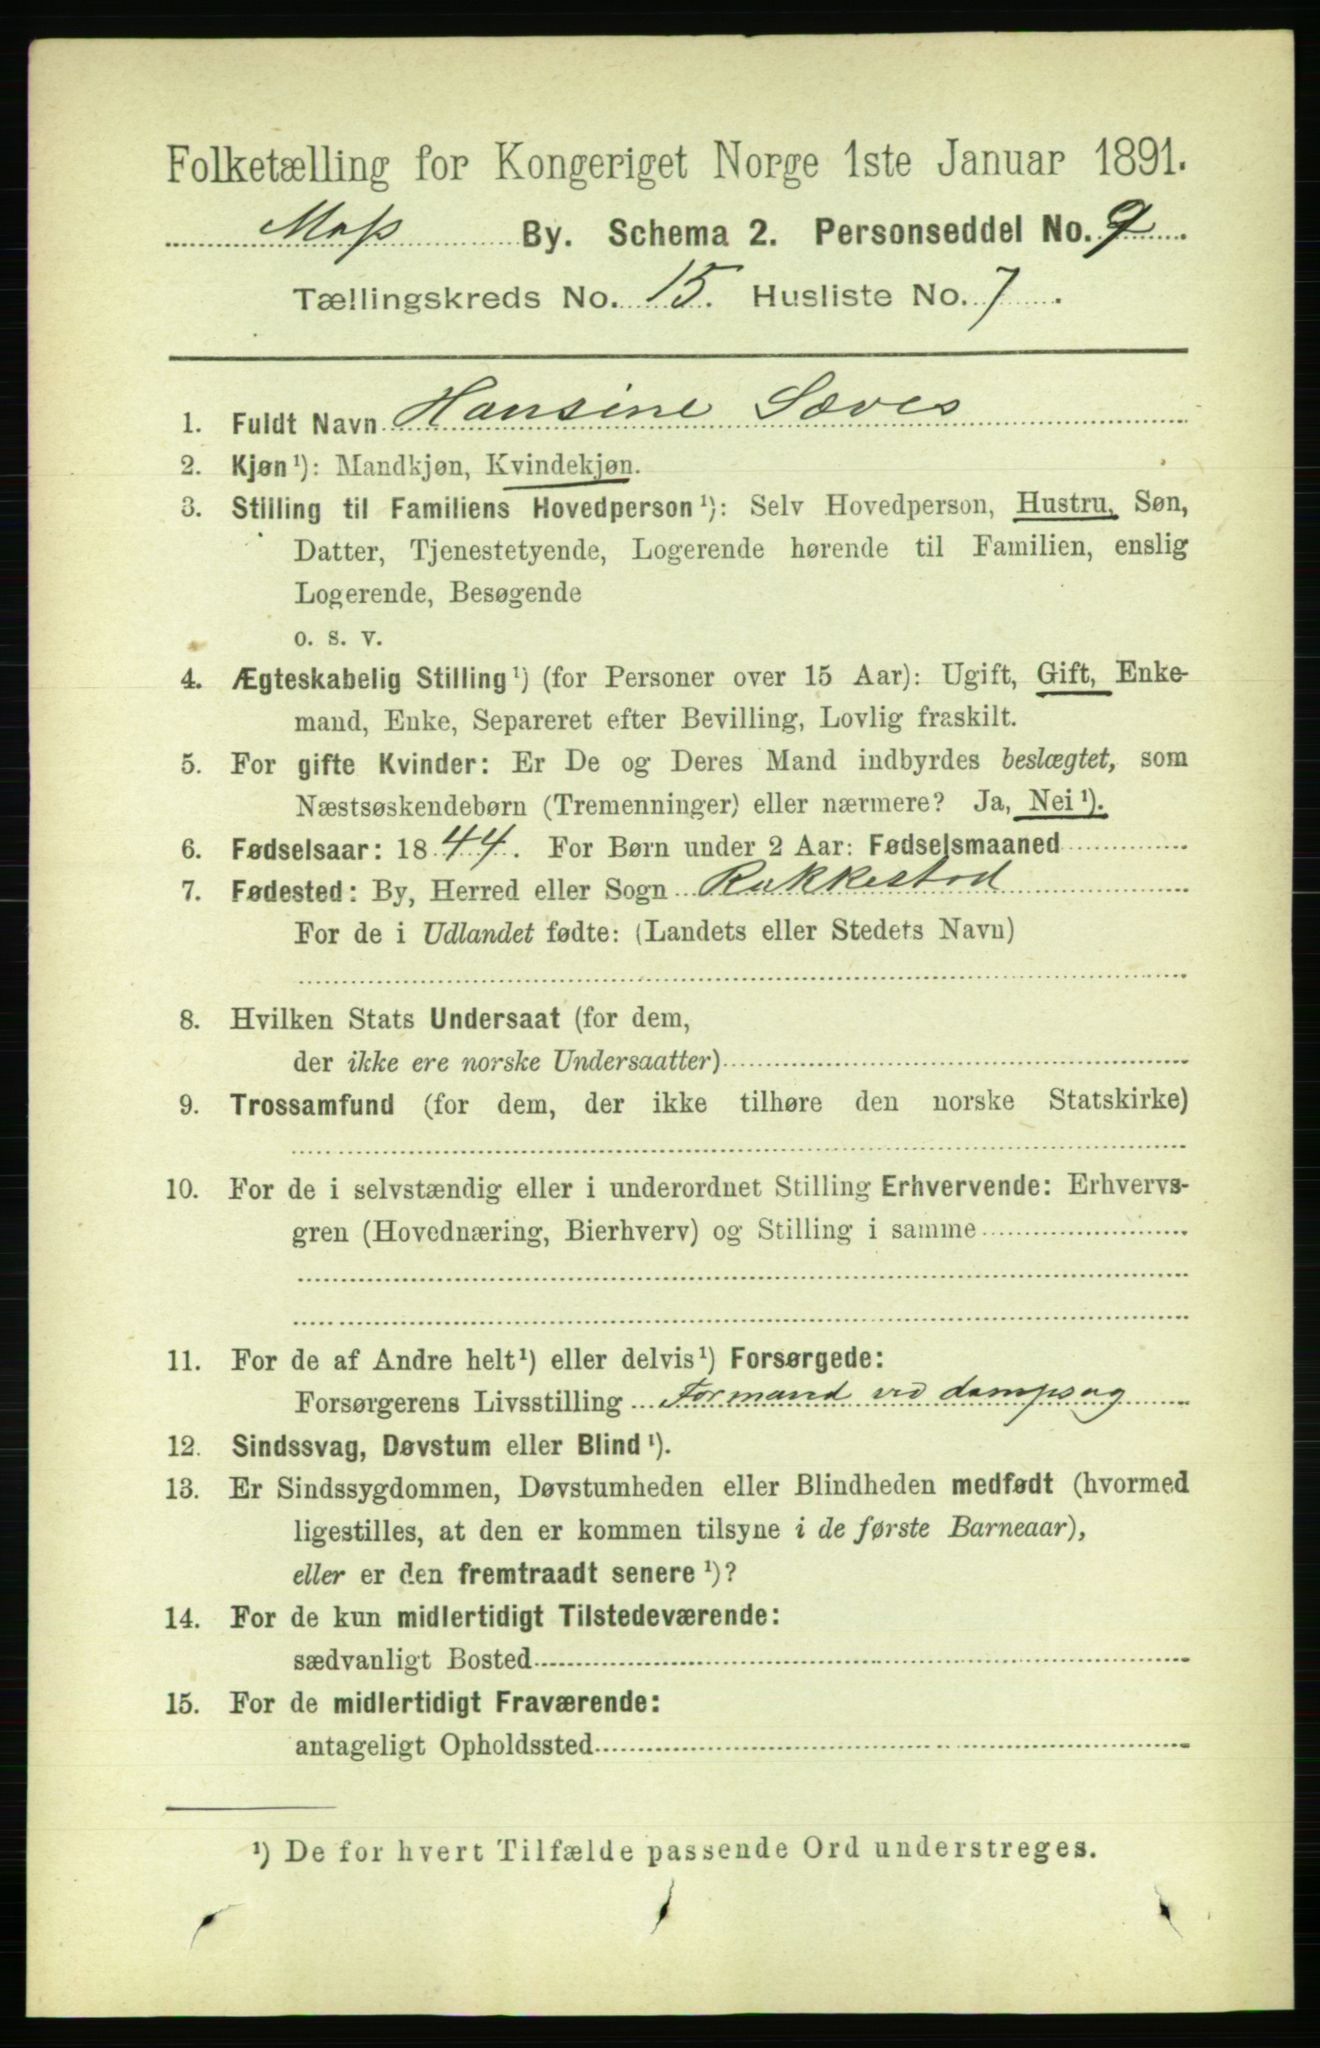 Folketælling for Kongeriget Norge 1ste Januar 1891.
Moss By. Schema 2. Personseddel No. 9
Tællingskreds No. 15. Husliste No. 7.
1. Fuldt Navn Hansine Sæves
2. Kjøn¹): Mandkjøn, Kvindekjøn.
3. Stilling til Familiens Hovedperson¹): Selv Hovedperson, Hustru, Søn,
Datter, Tjenestetyende, Logerende hørende til Familien, enslig
Logerende, Besøgende
o. s. v.
4. Ægteskabelig Stilling¹) (for Personer over 15 Aar): Ugift, Gift, Enke-
mand, Enke, Separeret efter Bevilling, Lovlig fraskilt.
5. For gifte Kvinder: Er De og Deres Mand indbyrdes beslægtet, som
Næstsøskendebørn (Tremenninger) eller nærmere? Ja, Nei¹).
6. Fødselsaar: 1844. For Børn under 2 Aar: Fødselsmaaned
7. Fødested: By, Herred eller Sogn Rakkestad
For de i Udlandet fødte: (Landets eller Stedets Navn)
8. Hvilken Stats Undersaat (for dem,
der ikke ere norske Undersaatter)
9. Trossamfund (for dem, der ikke tilhøre den norske Statskirke)
10. For de i selvstændig eller i underordnet Stilling Erhvervende: Erhvervs-
gren (Hovednæring, Bierhverv) og Stilling i samme
11. For de af Andre helt¹) eller delvis¹) Forsørgede:
Forsørgerens Livsstilling Formand ved dampsag
12. Sindssvag, Døvstum eller Blind¹).
13. Er Sindssygdommen, Døvstumheden eller Blindheden medfødt (hvormed
ligestilles, at den er kommen tilsyne i de første Barneaar),
eller er den fremtraadt senere¹)?
14. For de kun midlertidigt Tilstedeværende:
sædvanligt Bosted
15. For de midlertidigt Fraværende:
antageligt Opholdssted
¹) De for hvert Tilfælde passende Ord understreges.